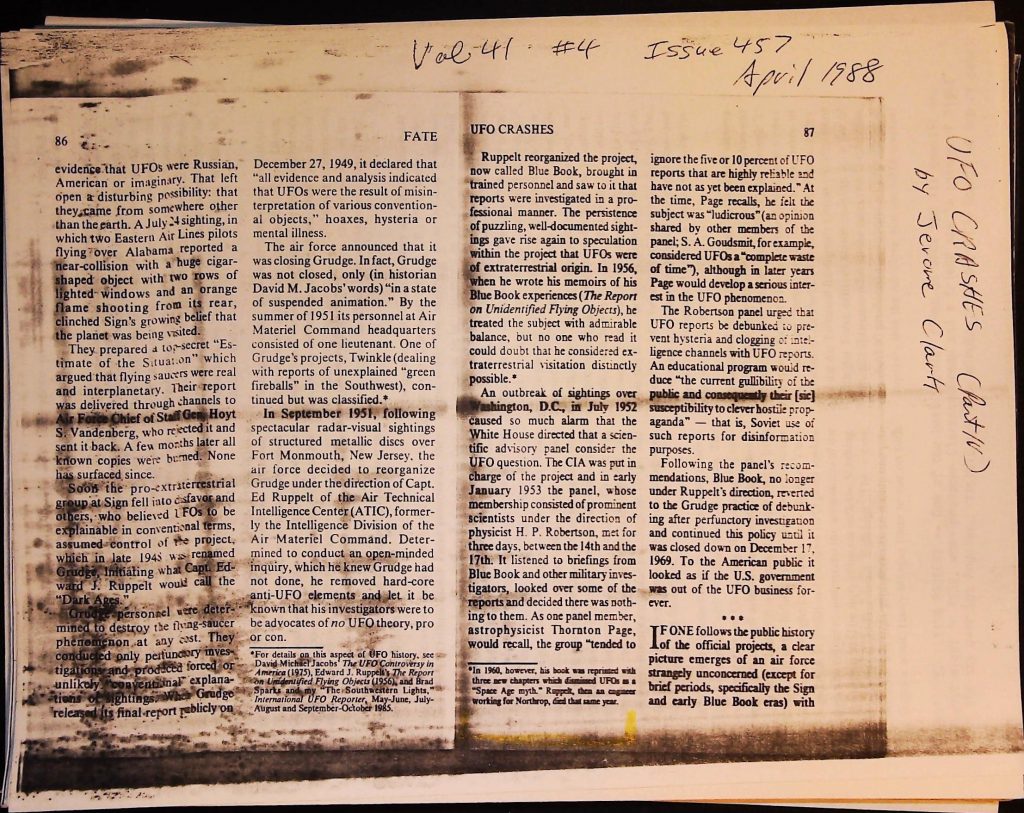 Vol 41 #4 Issue 457
April 1988
UFO CRASHES
by Jerome Clark
86
FATE
evidence that UFOs were Russian,
American or imaginary. That left
open a disturbing possibility: that
they came from somewhere other
than the earth. A July 24 sighting, in
which two Eastern Air Lines pilots
flying over Alabama reported a
near-collision with a huge cigar-
shaped object with two rows of
lighted windows and an orange
flame shooting from its rear,
clinched Sign's growing belief that
the planet was being visited.
They prepared a top-secret "Es-
timate of the Situation" which
argued that flying saucers were real
and interplanetary. Their report
was delivered through channels to
Air Force Chief of Staff Gen. Hoyt
S. Vandenberg, who rejected it and
sent it back. A few months later all
known copies were burned. None
has surfaced since.
Soon the pro-extraterrestrial
group at Sign fell into disfavor and
others, who believed UFOs to be
explainable in conventional terms,
assumed control of the project,
which in late 1948 was renamed
Grudge, initiating what Capt. Ed-
ward J. Ruppelt would call the
"Dark Ages."
Grudge personnel were deter-
mined to destroy the flying-saucer
phenomenon at any cost. They
conducted only perfunctory inves-
tigations and produced forced or
unlikely "conventional" explana-
tions of sightings. When Grudge
released its final report publicly on
December 27, 1949, it declared that
"all evidence and analysis indicated
that UFOs were the result of misin-
terpretation of various convention-
al objects," hoaxes, hysteria or
mental illness.
The air force announced that it
was closing Grudge. In fact, Grudge
was not closed, only (in historian
David M. Jacobs' words) "in a state
of suspended animation." By the
summer of 1951 its personnel at Air
Materiel Command headquarters
consisted of one lieutenant. One of
Grudge's projects, Twinkle (dealing
with reports of unexplained "green
fireballs" in the Southwest), con-
tinued but was classified.*
In September 1951, following
spectacular radar-visual sightings
of structured metallic discs over
Fort Monmouth, New Jersey, the
air force decided to reorganize
Grudge under the direction of Capt.
Ed Ruppelt of the Air Technical
Intelligence Center (ATIC), former-
ly the Intelligence Division of the
Air Materiel Command. Deter-
mined to conduct an open-minded
inquiry, which he knew Grudge had
not done, he removed hard-core
anti-UFO elements and let it be
known that his investigators were to
be advocates of no UFO theory, pro
or con.
*For details on this aspect of UFO history, see
David Michael Jacobs' The UFO Controversy in
America (1975), Edward J. Ruppelt's The Report
on Unidentified Flying Objects (1956), and Brad
Sparks and my "The Southwestern Lights,"
International UFO Reporter, May-June, July-
August and September-October 1985.
UFO CRASHES
87
Ruppelt reorganized the project,
now called Blue Book, brought in
trained personnel and saw to it that
reports were investigated in a pro-
fessional manner. The persistence
of puzzling, well-documented sight-
ings gave rise again to speculation
within the project that UFOs were
of extraterrestrial origin. In 1956,
when he wrote his memoirs of his
Blue Book experiences (The Report
on Unidentified Flying Objects), he
treated the subject with admirable
balance, but no one who read it
could doubt that he considered ex-
traterrestrial visitation distinctly
possible.*
An outbreak of sightings over
Washington, D.C., in July 1952
caused so much alarm that the
White House directed that a scien-
tific advisory panel consider the
UFO question. The CIA was put in
charge of the project and in early
January 1953 the panel, whose
membership consisted of prominent
scientists under the direction of
physicist H. P. Robertson, met for
three days, between the 14th and the
17th. It listened to briefings from
Blue Book and other military inves-
tigators, looked over some of the
reports and decided there was noth-
ing to them. As one panel member,
astrophysicist Thornton Page,
would recall, the group "tended to
*In 1960, however, his book was reprinted with
three new chapters which dismissed UFOs as a
"Space Age myth." Ruppelt, then an engineer
working for Northrop, died that same year.
ignore the five or 10 percent of UFO
reports that are highly reliable and
have not as yet been explained." At
the time, Page recalls, he felt the
subject was "ludicrous" (an opinion
shared by other members of the
panel; S. A. Goudsmit, for example,
considered UFOs a "complete waste
of time"), although in later years
Page would develop a serious inter-
est in the UFO phenomenon.
The Robertson panel urged that
UFO reports be debunked to pre-
vent hysteria and clogging of intel-
ligence channels with UFO reports.
An educational program would re-
duce "the current gullibility of the
public and consequently their [sic]
susceptibility to clever hostile prop-
aganda" — that is, Soviet use of
such reports for disinformation
purposes.
Following the panel's recom-
mendations, Blue Book, no longer
under Ruppelt's direction, reverted
to the Grudge practice of debunk-
ing after perfunctory investigation
and continued this policy until it
was closed down on December 17,
1969. To the American public it
looked as if the U.S. government
was out of the UFO business for-
ever.
• • •
IF ONE follows the public history
of the official projects, a clear
picture emerges of an air force
strangely unconcerned (except for
brief periods, specifically the Sign
and early Blue Book eras) with